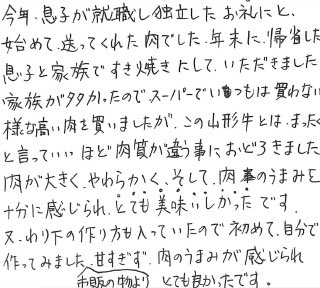 今年、息子が就職し独立したお礼にと、
始めて、送ってくれた肉でした。年末に、帰省した
息子と家族ですき焼きにして、いただきました
家族が多かったので、スーパーでいつもは買わない
様な高い肉を買いましたが、この山形牛とは、まったく
と言っていいほど肉質が違う事におどろきました
肉が大きく、やわらかく、そして、肉のうまみを
十分に感じられ、とても美味しかったです。
又、わり下の作り方も入っていたので初めて、自分で
作ってみました。甘すぎず、肉のうまみが感じられ
市販の物より とても良かったです。